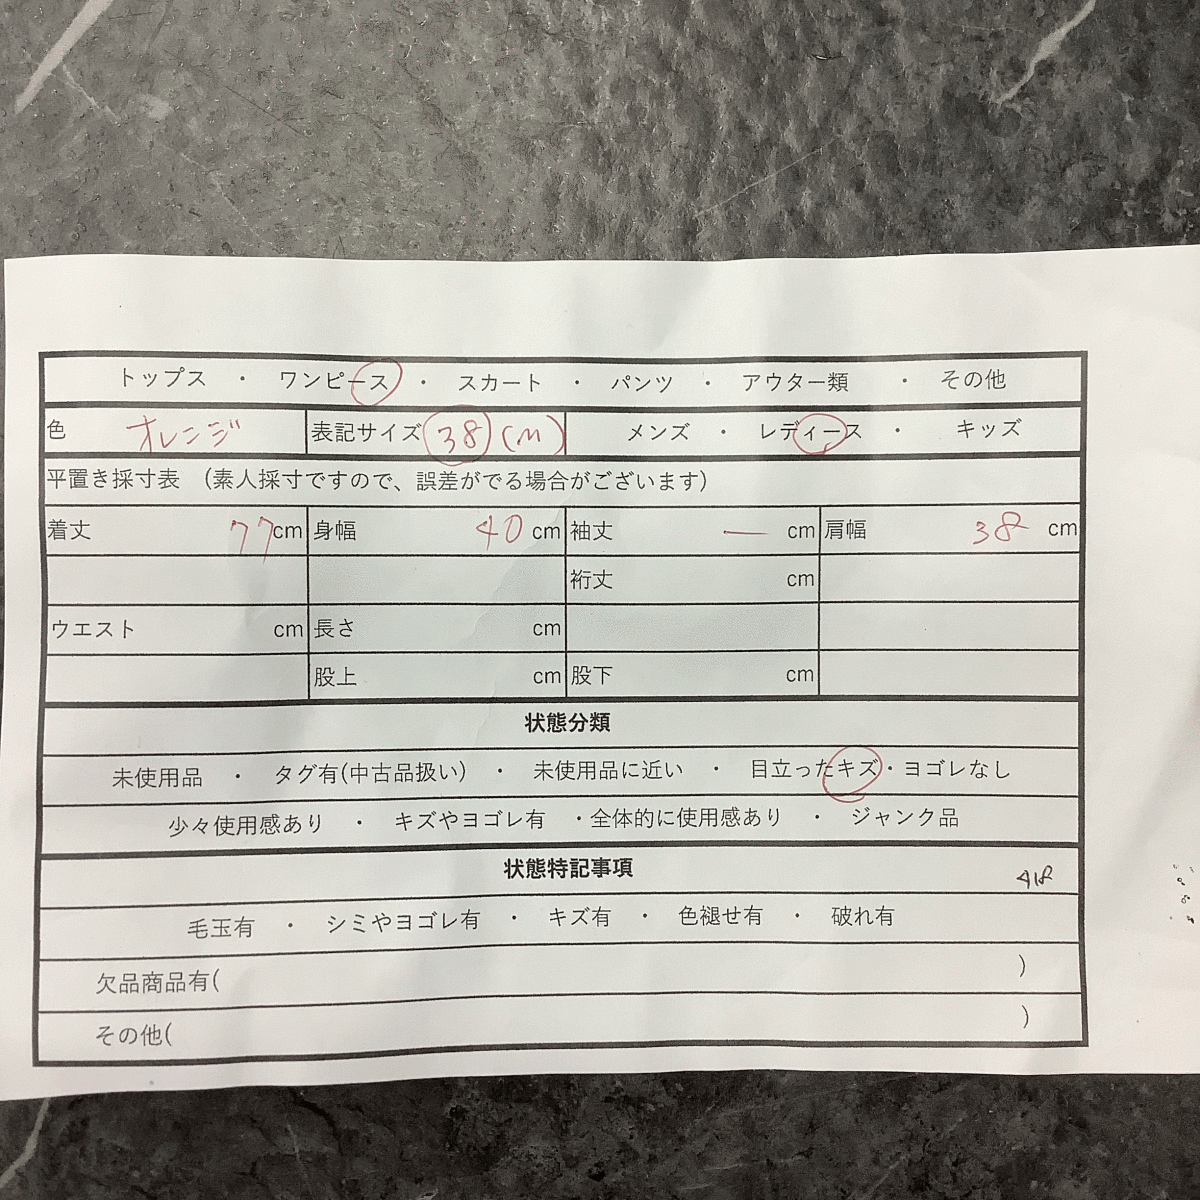 トップス ・ ワンピース ・ スカート ・ パンツ ・ アウター類 ・ その他
色 オレンジ 表記サイズ 38 (M) メンズ ・ レディース ・ キッズ
平置き採寸表 （素人採寸ですので、誤差がでる場合がございます）
着丈 77cm 身幅 40 cm 袖丈 ー cm 肩幅 38 cm
裄丈 cm
ウエスト cm 長さ cm
股上 cm 股下 cm
状態分類
未使用品 ・ タグ有(中古品扱い) ・ 未使用品に近い ・ 目立ったキズ・ヨゴレなし
少々使用感あり ・ キズやヨゴレ有 ・全体的に使用感あり ・ ジャンク品
状態特記事項
418
毛玉有 ・ シミやヨゴレ有 ・ キズ有 ・ 色褪せ有 ・ 破れ有
欠品商品有( )
その他( )